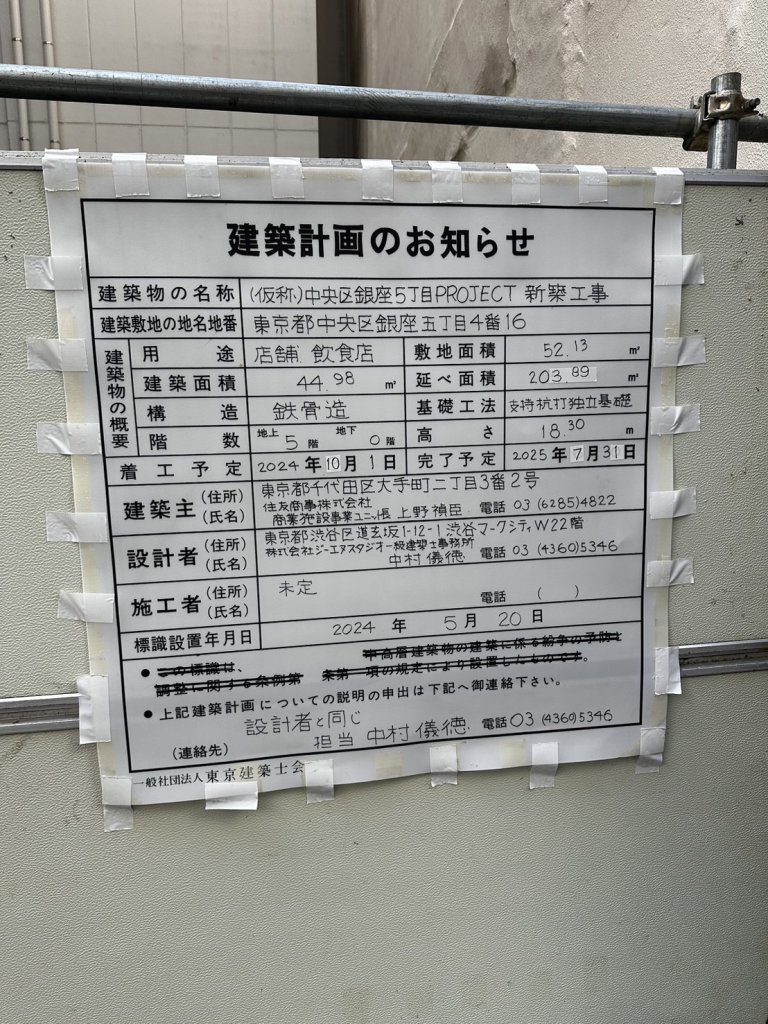 建築計画のお知らせ
建築物の名称 (仮称)中央区銀座5丁目PROJECT 新築工事
建築敷地の地名地番 東京都中央区銀座五丁目4番16
建築物の概要
用途 店舗 飲食店 敷地面積 52.13 ㎡
建築面積 44.98 ㎡ 延べ面積 203.89 ㎡
構造 鉄骨造 基礎工法 支持杭打独立基礎
階数 地上 5 階 地下 0 階 高さ 18.30 m
着工予定 2024年10月1日 完了予定 2025年7月31日
建築主 (住所) 東京都千代田区大手町二丁目3番2号
(氏名) 住友商事株式会社
商業施設事業ユニット長 上野禎臣 電話 03 (6285)4822
設計者 (住所) 東京都渋谷区道玄坂1-12-1 渋谷マークシティW22階
(氏名) 株式会社ジーエヌスタジオ一級建築士事務所
中村儀徳 電話 03 (4360)5346
施工者 (住所) 未定
(氏名) 電話 ( )
標識設置年月日 2024 年 5 月 20 日
●この標識は、中高層建築物の建築に係る紛争の予防と
調整に関する条例第 条第一項の規定により設置したものです。
●上記建築計画についての説明の申出は下記へ御連絡下さい。
設計者と同じ
(連絡先) 担当 中村儀徳 電話 03 (4360)5346
一般社団法人東京建築士会